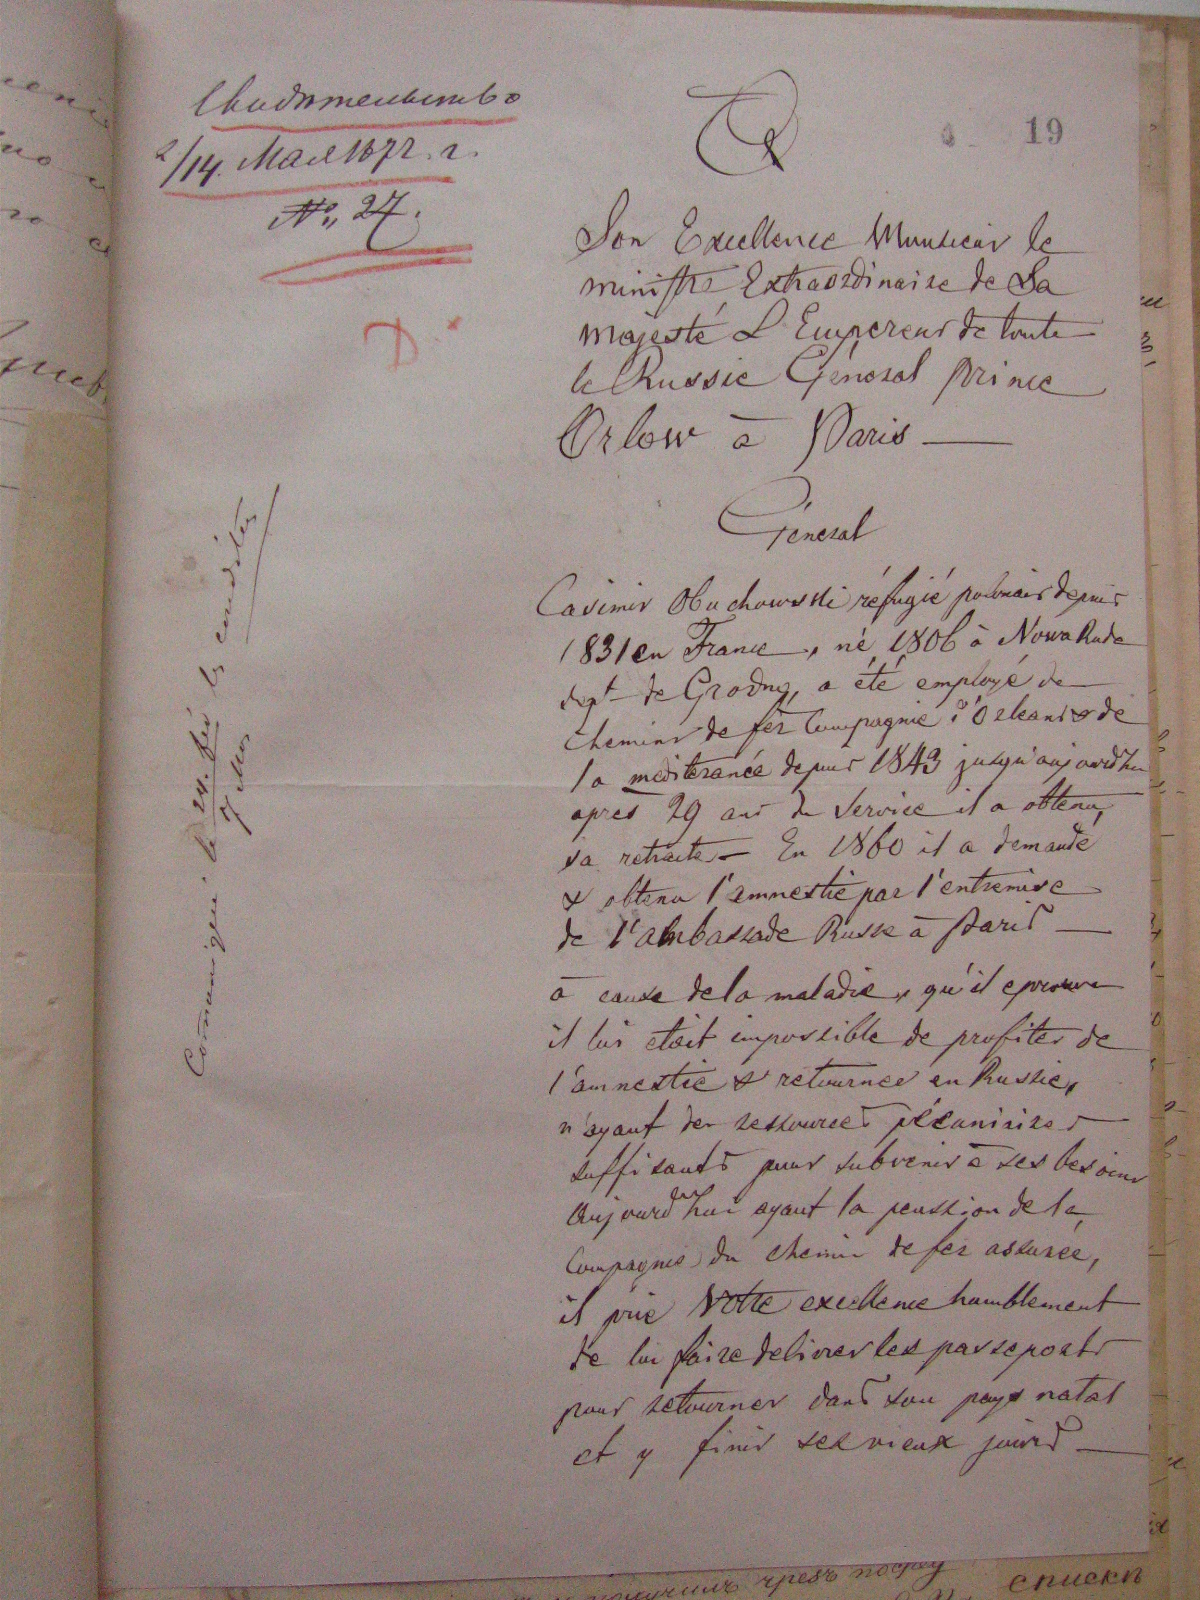 Свидѣтельство
2/14. Мая 1872. г.
№ 27.
19
D
Son Excellence Monsieur le
ministre Extraordinaire de Sa
Majesté L'Empereur de toute
la Russie Général Prince
Orlow à Paris —
Général
Casimir Obuchowski réfugié polonais depuis
1831 en France, né 1806 à Nowa Ruda
dept de Grodno, a été employé de
chemins de fer Compagnie d'Orleans & de
la mediteranée depuis 1843 jusqu'aujourd'hu
apres 29 ans de Service il a obtenu,
sa retraite — En 1860 il a demandé
& obtenu l'amnestie par l'entremise
de l'ambassade Russe à Paris —
à cause de la maladie, qu'il eprouve
il lui etait impossible de profiter de
l'amnestie & retourner en Russie,
n'ayant des ressources pécuniaires
suffisants pour subvenir à ses besoins
Aujourd'hui ayant la penssion de la
Compagnie du chemin de fer assurée,
il prie Votre excellence humblement
de lui faire delivrer les passeports
pour retourner dans son pays natal
et y finir ses vieux jours —
Communiqué le 24. fév
7 Mars
чрезъ посред
списки